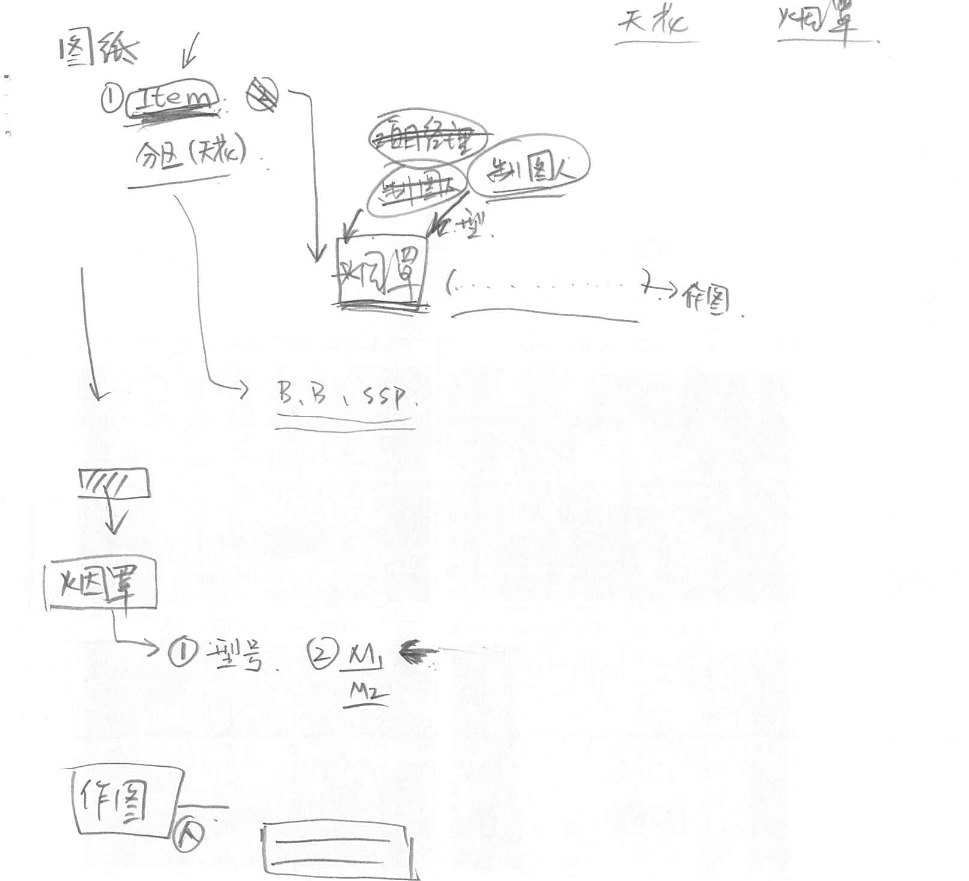 天花 烟罩
图纸
① Item ②
分区(天花)
项目经理
制图人 制图人
型.
烟罩 (............) 作图.
B、B、SSP.
烟罩
① 型号. ② M1
M2
作图
A